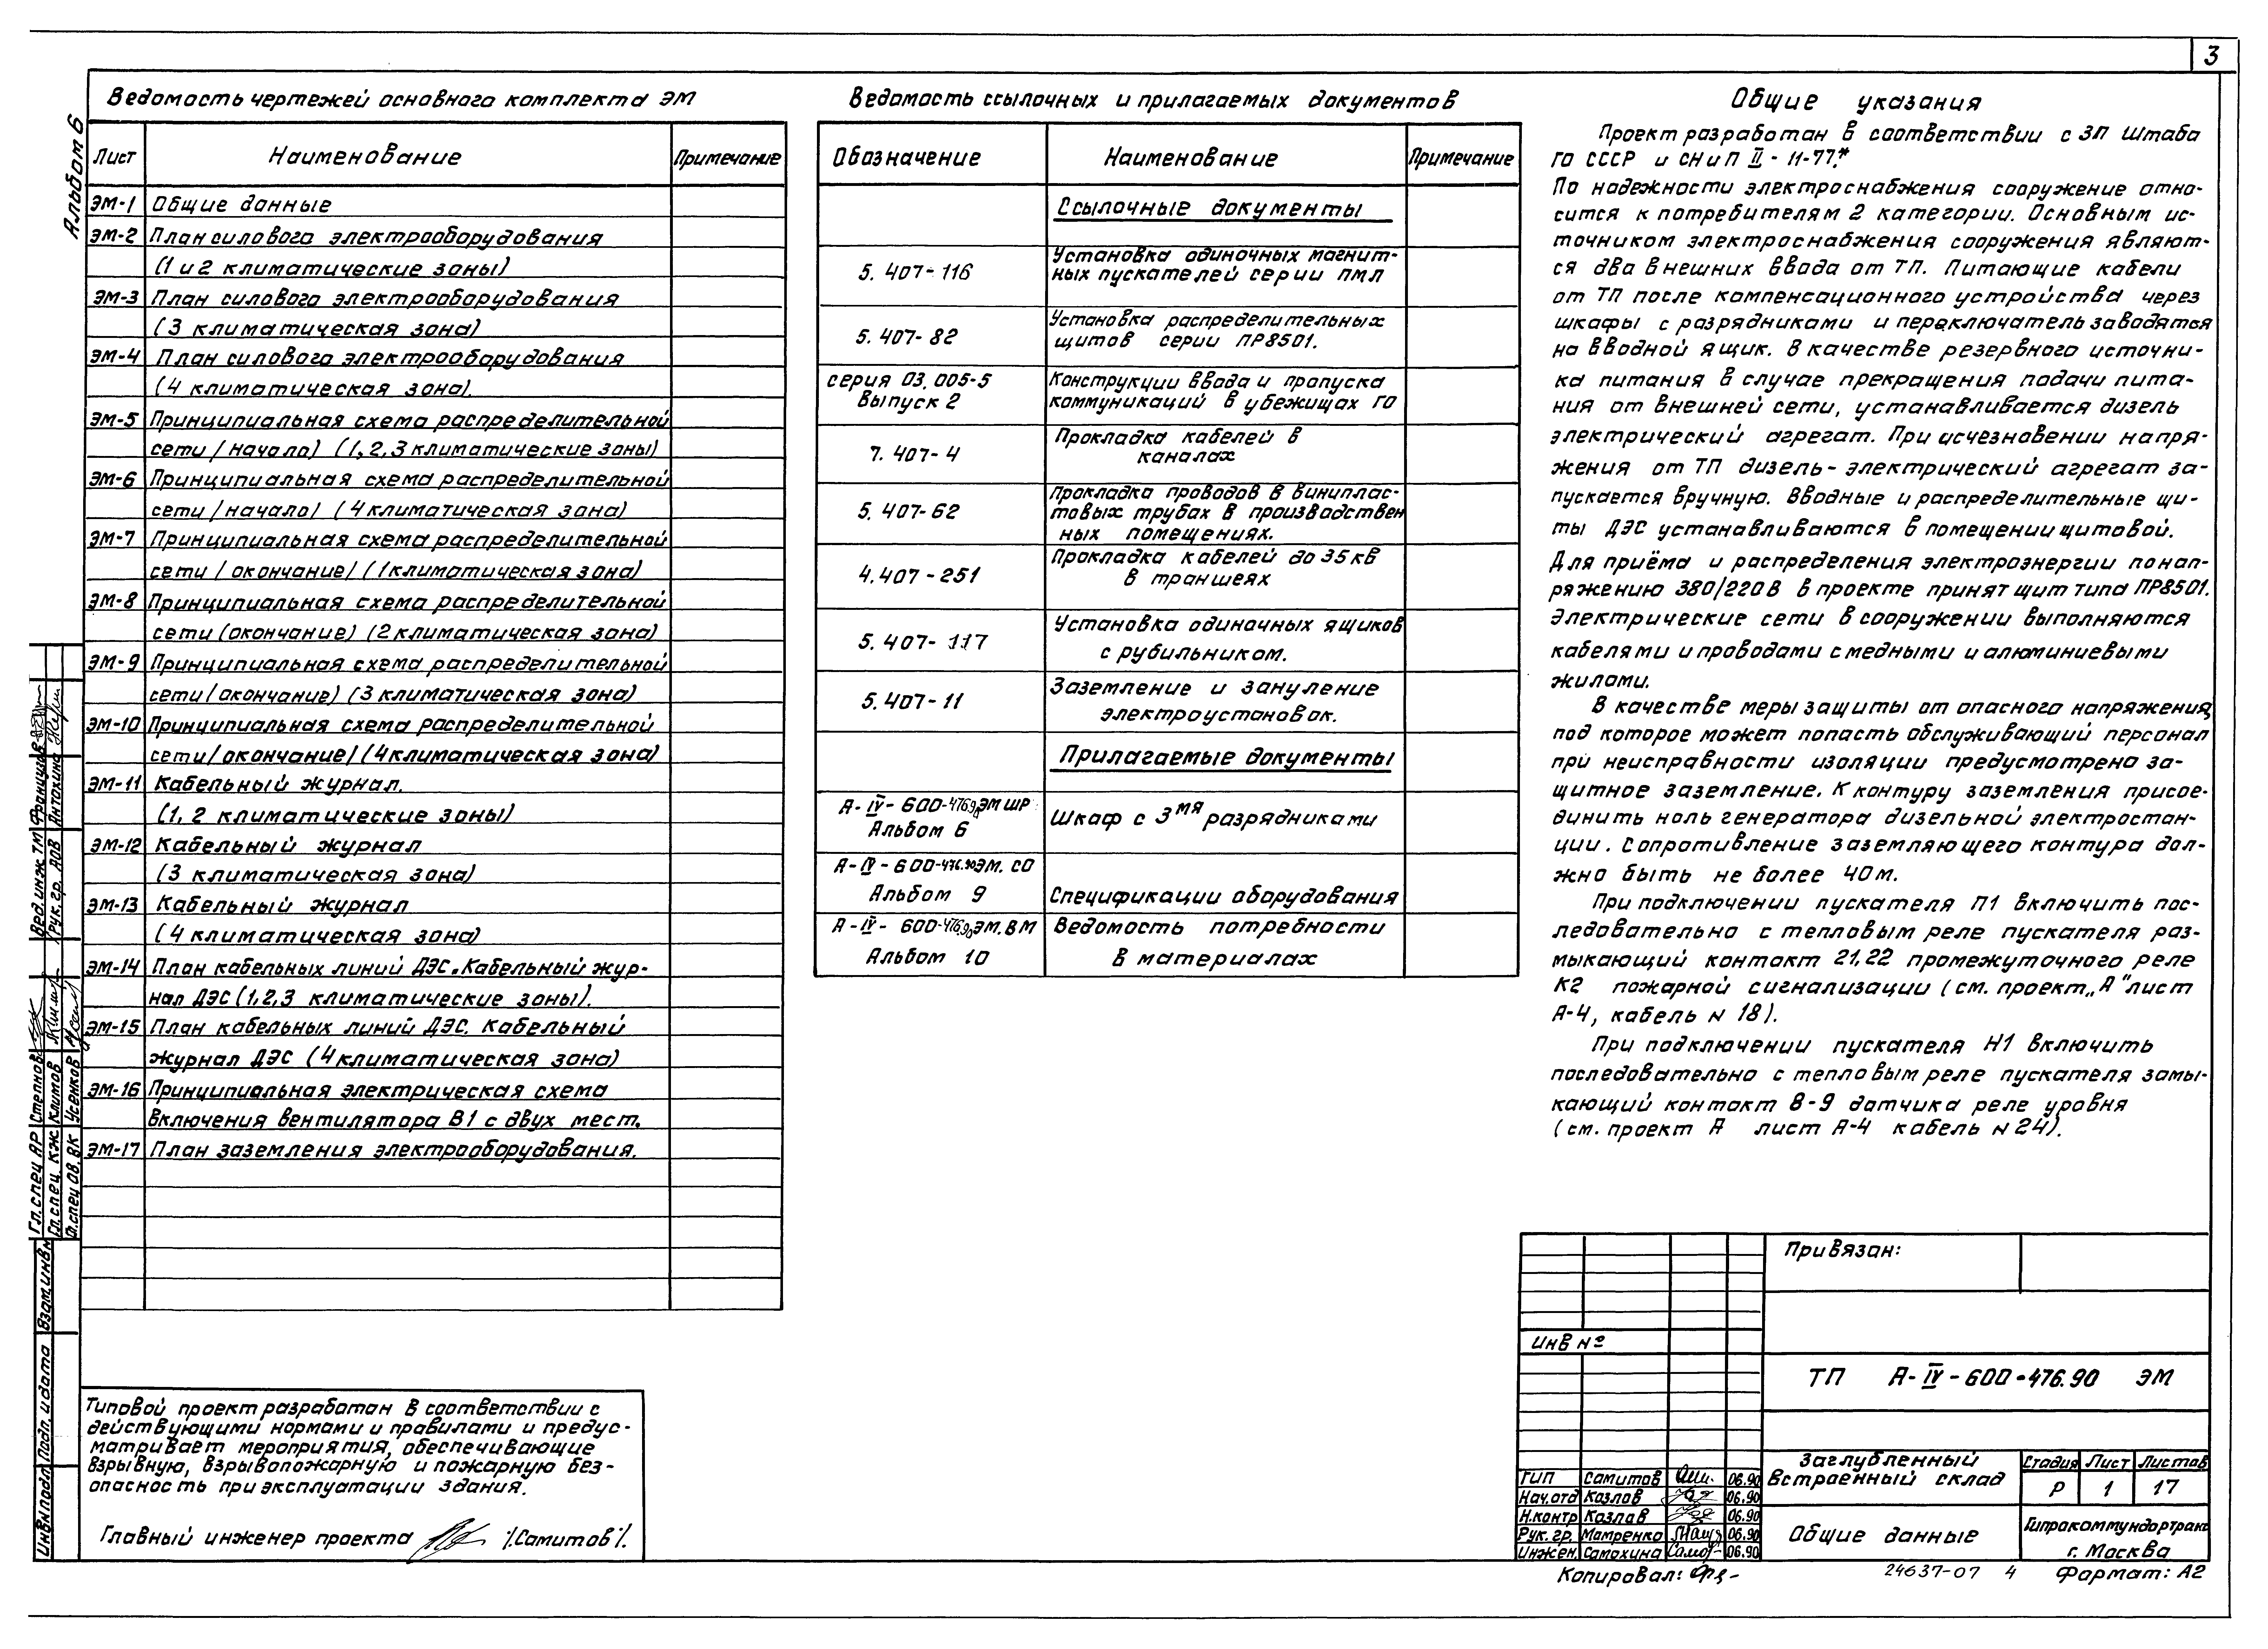 3
Альбом 6
Ведомость чертежей основного комплекта ЭМ
Лист Наименование Примечание
ЭМ-1 Общие данные
ЭМ-2 План силового электрооборудования
(1 и 2 климатические зоны)
ЭМ-3 План силового электрооборудования
(3 климатическая зона)
ЭМ-4 План силового электрооборудования
(4 климатическая зона).
ЭМ-5 Принципиальная схема распределительной
сети (начало) (1,2,3 климатические зоны)
ЭМ-6 Принципиальная схема распределительной
сети (начало) (4 климатическая зона)
ЭМ-7 Принципиальная схема распределительной
сети (окончание) (1 климатическая зона)
ЭМ-8 Принципиальная схема распределительной
сети (окончание) (2 климатическая зона)
ЭМ-9 Принципиальная схема распределительной
сети (окончание) (3 климатическая зона)
ЭМ-10 Принципиальная схема распределительной
сети (окончание) (4 климатическая зона)
ЭМ-11 Кабельный журнал.
(1,2 климатические зоны)
ЭМ-12 Кабельный журнал
(3 климатическая зона)
ЭМ-13 Кабельный журнал
(4 климатическая зона)
ЭМ-14 План кабельных линий ДЭС. Кабельный жур-
нал ДЭС (1,2,3 климатические зоны).
ЭМ-15 План кабельных линий ДЭС. Кабельный
журнал ДЭС (4 климатическая зона)
ЭМ-16 Принципиальная электрическая схема
включения вентилятора В1 с двух мест.
ЭМ-17 План заземления электрооборудования.
Ведомость ссылочных и прилагаемых документов
Обозначение Наименование Примечание
Ссылочные документы
5.407-116 Установка одиночных магнит-
ных пускателей серии ПМЛ
5.407-82 Установка распределительных
щитов серии ПР8501.
серия 03.005-5 Конструкции ввода и пропуска
Выпуск 2 коммуникаций в убежищах ГО
7.407-4 Прокладка кабелей в
каналах
5.407-62 Прокладка проводов в виниплас-
товых трубах в производствен
ных помещениях.
4.407-251 Прокладка кабелей до 35 кв
в траншеях
5.407-117 Установка одиночных ящиков
с рубильником.
5.407-11 Заземление и зануление
электроустановок.
Прилагаемые документы
А-IV-600-476.90 ЭМ ШР Шкаф с 3мя разрядниками
Альбом 6
А-IV-600-476.90 ЭМ.СО
Альбом 9 Спецификации оборудования
А-IV-600-476.90 ЭМ.ВМ Ведомость потребности
Альбом 10 в материалах
Общие указания
Проект разработан в соответствии с ЗП Штаба
ГО СССР и СНиП II-11-77.*
По надежности электроснабжения сооружение отно-
сится к потребителям 2 категории. Основным ис-
точником электроснабжения сооружения являют-
ся два внешних ввода от ТП. Питающие кабели
от ТП после компенсационного устройства через
шкафы с разрядниками и переключатель заводятся
на вводной ящик. В качестве резервного источни-
ка питания в случае прекращения подачи пита-
ния от внешней сети, устанавливается дизель
электрический агрегат. При исчезновении напря-
жения от ТП дизель-электрический агрегат за-
пускается вручную. Вводные и распределительные щи-
ты ДЭС устанавливаются в помещении щитовой.
Для приёма и распределения электроэнергии по нап-
ряжению 380/220В в проекте принят щит типа ПР8501.
Электрические сети в сооружении выполняются
кабелями и проводами с медными и алюминиевыми
жилами.
В качестве меры защиты от опасного напряжения,
под которое может попасть обслуживающий персонал
при неисправности изоляции предусмотрено за-
щитное заземление. К контуру заземления присое-
динить ноль генератора дизельной электростан-
ции. Сопротивление заземляющего контура дол-
жно быть не более 4 Ом.
При подключении пускателя П1 включить пос-
ледовательно с тепловым реле пускателя раз-
мыкающий контакт 21,22 промежуточного реле
К2 пожарной сигнализации (см. проект „А" лист
А-4, кабель н 18).
При подключении пускателя Н1 включить
последовательно с тепловым реле пускателя замы-
кающий контакт 8-9 датчика реле уровня
(см. проект А лист А-4 кабель н 24).
Вед.инж. ТМ Французов
Рук.гр. АОВ Антохина
Гл.спец АР Степнов
Гл.спец. КЖ Климов
Гл.спец ОВ.ВК Усенков
Взам.инв н
Подп. и дата
Инв н подл
Типовой проект разработан в соответствии с
действующими нормами и правилами и предус-
матривает мероприятия, обеспечивающие
взрывную, взрывопожарную и пожарную без-
опасность при эксплуатации здания.
Главный инженер проекта /Самитов/.
Привязан:
Инв №
ТП А-IV-600-476.90 ЭМ
ГИП Самитов 06.90
Нач.отд Козлов 06.90
Н.контр Козлов 06.90
Рук.гр. Матренко 06.90
Инжен. Самохина 06.90
Заглубленный
встроенный склад
Стадия Лист Листов
Р 1 17
Общие данные
Гипрокоммундортранс
г. Москва
Копировал:
24637-07 4 Формат: А2